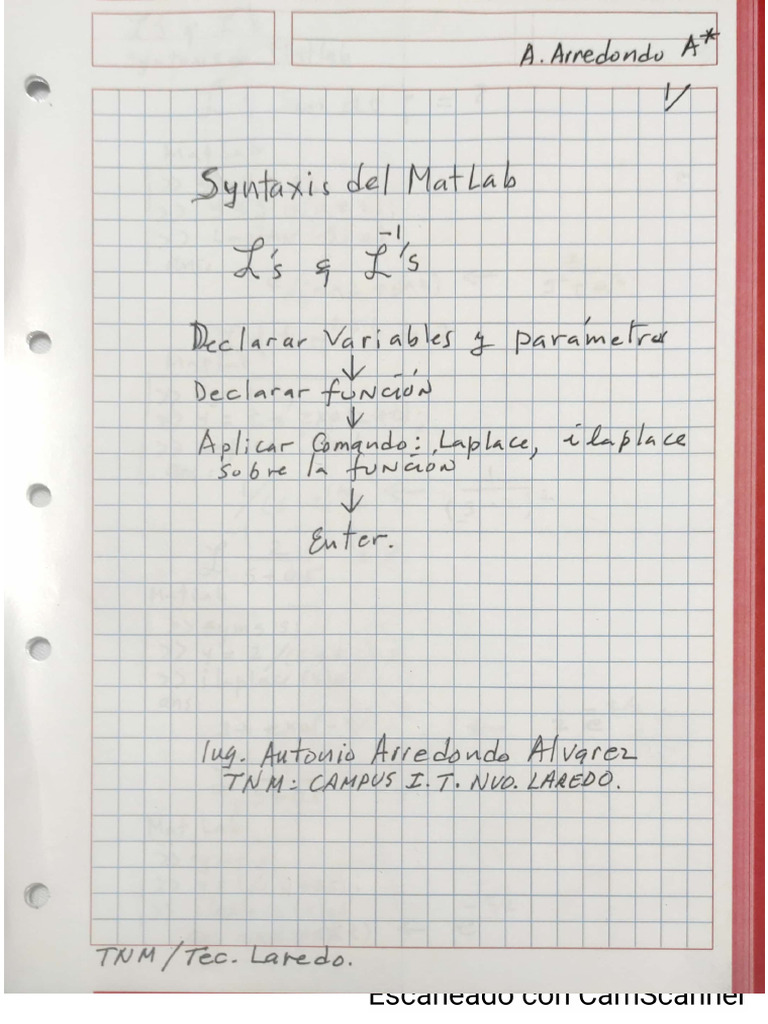 A. Arredondo A*
1/
Syntaxis del MatLab
ℒ's & ℒ⁻¹'s
Declarar Variables y parámetros
↓
Declarar función
↓
Aplicar Comando: Laplace, ilaplace
sobre la función
↓
Enter.
Ing. Antonio Arredondo Alvarez
TNM: CAMPUS I.T. NVO. LAREDO.
TNM/Tec. Laredo.
Escaneado con CamScanner